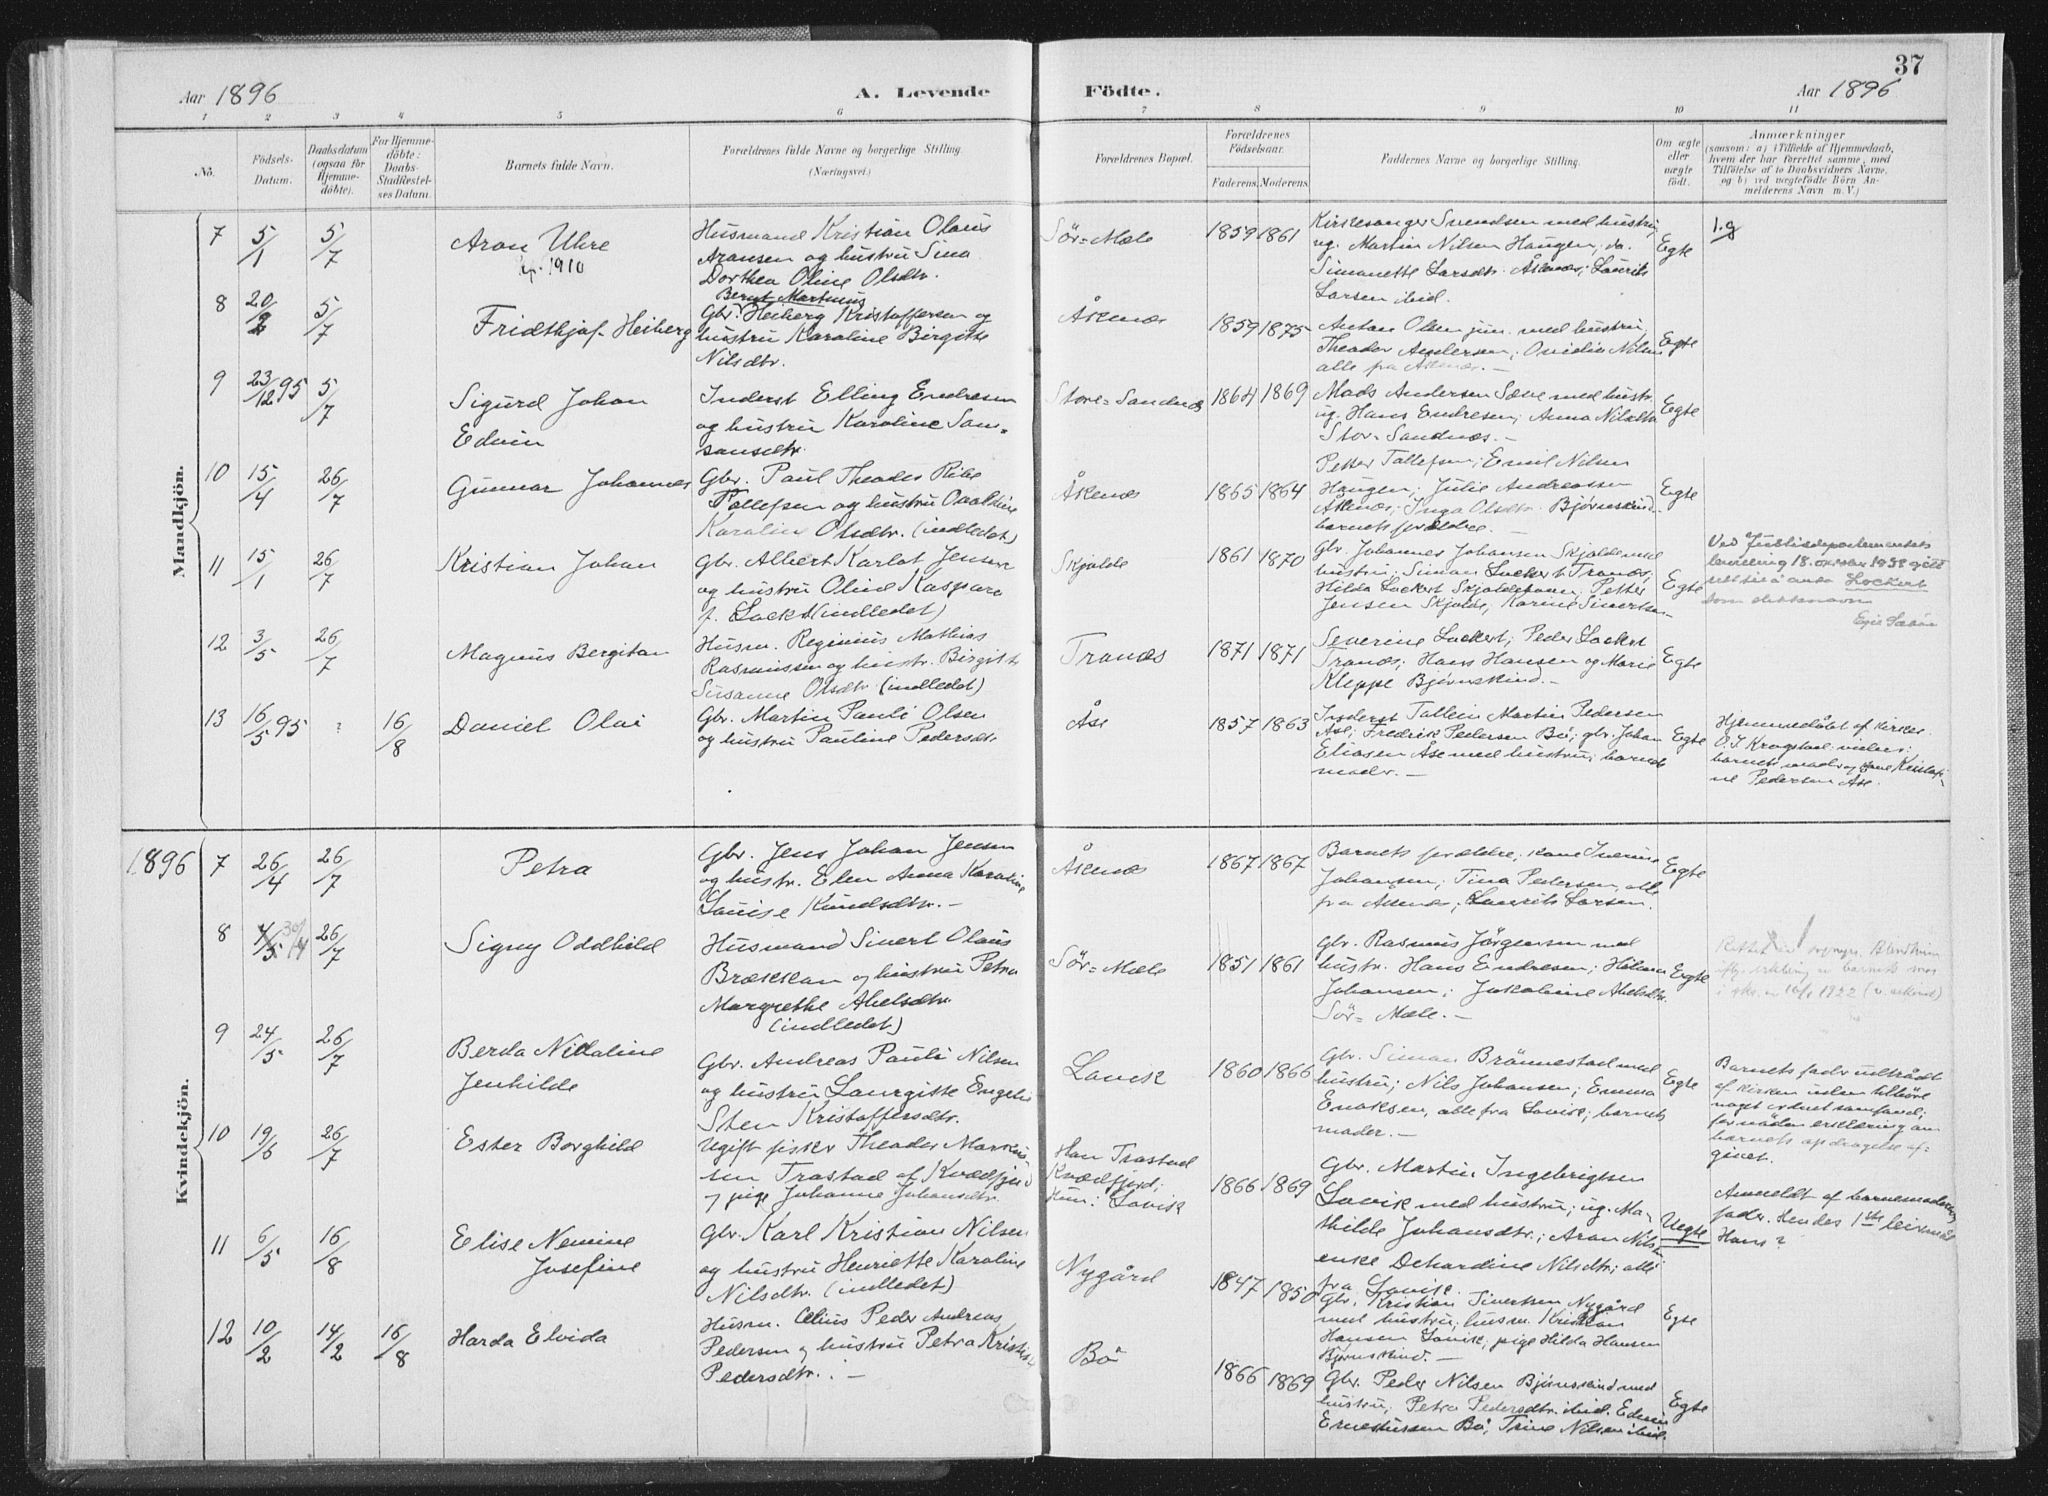 37
Aar 1896
A. Levende
Födte.
Aar 1896
1 2 3 4 5 6 7 8 9 10 11
No.
Födsels-
Datum.
Daabsdatum
(ogsaa for
Hjemme-
döbte).
For Hjemme-
döbte:
Daabs-
Stadfæstel-
ses Datum.
Barnets fulde Navn.
Forældrenes fulde Navne og borgerlige Stilling.
(Næringsvei.)
Forældrenes Bopæl.
Forældrenes
Födselsaar.
Faderens. Moderens.
Faddernes Navne og borgerlige Stilling.
Om ægte
eller
uægte
födt.
Anmærkninger
(saasom: a) i Tilfælde af Hjemmedaab,
hvem der har forrettet samme, med
Tilföielse af to Daabsvidners Navne,
og b) ved uægtefödte Börn An-
melderens Navn m. V.)
Mandkjön.
7 5/1 5/7
Aron Uhre
1910
Husmand Kristian Olaus
Aronsen og hustru Sina
Dorthea Oline Olsdtr.
Sör-Mæle
1859 1861
Kirkesanger Svendsen med hustru,
ug. Martin Nilsen Haugen, do.
Simonette Larsdtr. Åkenæs; Laurits
Larsen ibid.
Egte
1.g
8 20/2 5/7
Fridthjof Heiberg
Bernt Martinius
Gbr. Heiberg Kristoffersen og
hustru Karoline Birgitte
Nilsdtr.
Åkenæs
1859 1875
Anton Olsen jun. med hustru,
Theodor Andersen; Ovidia Nilsen
alle fra Åkenæs. —
Egte
9 23/12 95 5/7
Sigurd Johan
Edvin
Inderst Elling Endresen
og hustru Karoline Sam-
sonsdtr.
Store-Sandnæs
1864 1869
Mads Andersen Sæve med hustr.
ug. Hans Endresen; Anna Nilsdtr
Stor-Sandnæs. —
Egte
10 15/4 26/7
Gunnar Johannes
Gbr. Paul Theodor Ribe
Tollefsen og hustru Ovaldine
Karoline Olsdtr. (indledet)
Åkenæs
1865 1864
Petter Tollefsen; Emil Nilsen
Haugen; Julie Andreassen
Åkenæs; Inga Olsdtr. Bjørnskind.
barnets forældre. —
Egte
11 15/1 26/7
Kristian Johan
Gbr. Albert Karlot Jensen
og hustru Olind Kaspara
f. Lockert (indledet)
Skjolde
1861 1870
Gbr. Johannes Johansen Skjolde med
hustru; Simon Lockert Tranæs,
Hilda Lockert Skjoldehavn; Petter
Jensen Skjolde, Karine Sivertsen.
Egte
Ved Justisdepartementets
bevilling 18. oktober 1938 gitt
rett til å anta Lockert
som slektsnavn
12 3/5 26/7
Magnus Bergiton
Husm. Reginius Mathias
Rasmussen og hustr. Birgitte
Susanne Olsdtr. (indledet)
Tranæs
1871 1871
Severine Lockert; Peder Lockert
Tranæs; Hans Hansen og Marie
Kleppe Bjørnskind. —
Egte
13 16/5 95 16/8
Daniel Olai
Gbr. Martin Pauli Olsen
og hustru Pauline Pedersdtr
Åse
1857 1863
Inderst Tollein Martin Pedersen
Åse; Fredrik Pedersen Bö; gbr. Johan
Eliasen Åse med hustru; barnets
moder. —
Egte
Hjemmedöbt af kirkes.
O.J. Krogstad: vidner:
barnets moder og kone Kristofi-
ne Pedersen Åse.
Kvindekjön.
1896 7 26/4 26/7
Petra
Gbr. Jens Johan Jensen
og hustr. Elen Anna Karoline
Louise Knudsdtr. —
Åkenæs
1867 1867
Barnets forældre; kone Iverine
Johansen; Tina Pedersen, alle
fra Åkenæs; Laurits Larsen.
Egte
8 4/5 30/4 26/7
Signy Oddhild
Husmand Sivert Olaus
Brækkan og hustru Petra
Margrethe Abelsdtr.
(indledet)
Sör-Mæle
1851 1861
Gbr. Rasmus Jörgensen med
hustr. Hans Endresen; Hilma
Johansen; Jakobine Abelsdtr.
Sör-Mæle. —
Egte
9 24/5 26/7
Berda Nikoline
Jenhilde
Gbr. Andreas Pauli Nilsen
og hustru Laurgitte Engel
Sten Kristoffersdtr.
Lovik
1860 1866
Gbr. Simon Brönnestad med
hustru; Nils Johansen; Emma
Enoksen, alle fra Lovik; barnets
moder. —
Egte
Barnets fader udtrådt
af kirken uden tilhöre
noget ordnet samfund;
fornöden erklæring om
barnets opdragelse af-
givet.
10 19/6 26/7
Ester Borghild
Ugift fisker Theodor Markus-
sen Trastad af Kvædfjord
og pige Johanne Johansdtr.
Han Trastad
Kvædfjord;
Hun: Lovik
1866 1869
Gbr. Martin Ingebrigtsen
Lovik med hustru; ug. Ma-
thilde Johansdtr.; Aron Nilsen
enke Dehardine Nilsdtr; alle
fra Lovik.
Uegte
Anmeldt af barnemoderens
fader. Hendes 1ste leiermål
Hans?
11 6/5 16/8
Elise Nemine
Josefine
Gbr. Karl Kristian Nilsen
og hustru Henriette Karoline
Nilsdtr. (indledet)
Nygård
1847 1850
Gbr. Kristian Sivertsen Nygård
med hustru; husm. Kristian
Hansen Lovik; pige Hilda Hansen
Bjørnskind. —
Egte
12 10/2 14/2 16/8
Harda Elvida
Husm. Edius Peder Andreas
Pedersen og hustru Petra Kristine
Pedersdtr. —
Bö
1866 1869
Gbr. Peder Nilsen Bjørnskind med
hustru; Petra Pedersdtr. ibid. Edvin
Ernestussen Bö; Trine Nilsen ibid.
Egte